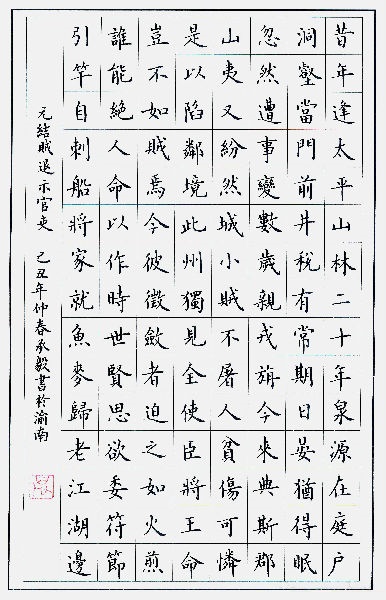 昔年逢太平山林二十年泉源在庭户
洞壑當門前井稅有常期日晏猶得眠
忽然遭事變數歲親戎旃今來典斯郡
山夷又紛然城小賊不屠人貧傷可憐
是以陷鄰境此州獨見全使臣將王命
豈不如賊焉今彼徵斂者迫之如火煎
誰能絕人命以作時世賢思欲委符節
引竿自刺船將家就魚麥歸老江湖邊
元結賊退示官吏 己丑年仲春承毅書於渝南